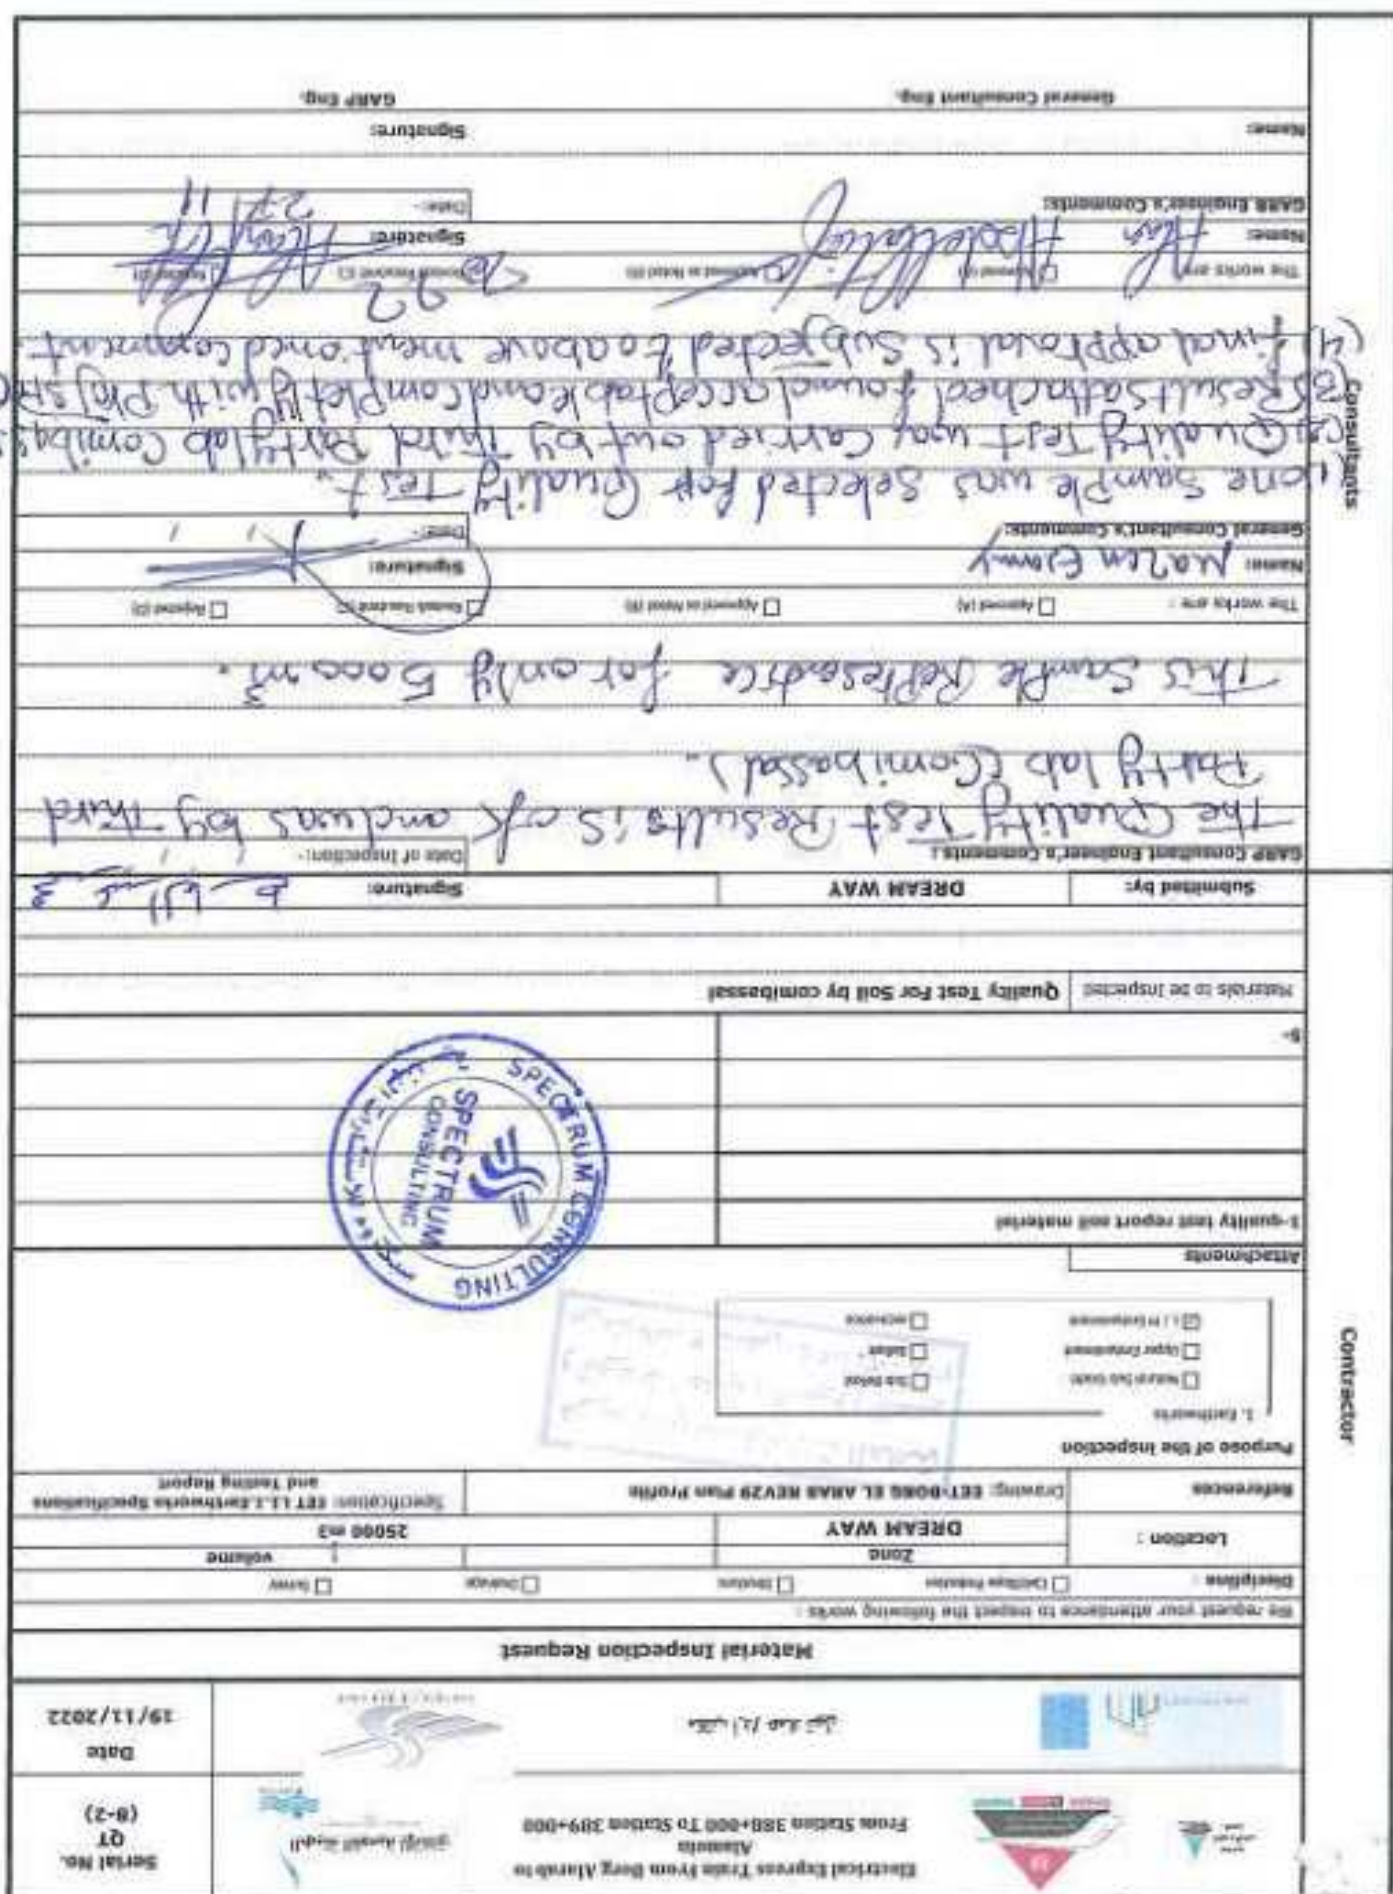 Electrical Express Train From Borg Alarab to
Alamein
From Station 388+000 To Station 389+000
Serial No.
QT
(8-2)
Date
19/11/2022
Material Inspection Request
We request your attendance to inspect the following works :
Discipline :
Structure
Drainage
Survey
Location :
Zone
volume
DREAM WAY
25000 m3
References
Drawing: EET-BORG EL ARAB REV29 Plan Profile
Specification: EET L1.1 Earthworks Specifications
and Testing Report
Purpose of the Inspection
1. Earthworks
Natural Sub Grade
Sub Ballast
Upper Embankment
Ballast
Embankment
Attachments
1-quality test report soil material
SPECTRUM CONSULTING
SPECTRUM
CONSULTING
5-
Materials to be Inspected
Quality Test For Soil by comibassal
Submitted by:
DREAM WAY
Signature:
GARP Consultant Engineer's Comments :
Date of Inspection:-
The Quality Test Results is ok and was by Third
Party lab (Comibassal).
This Sample Representice for only 5000 m³.
The works are :
Approved (A)
Approved as Noted (B)
Revise& Resubmit (C)
Rejected (D)
Name:
Signature:
General Consultant's Comments:
Date:-
(1) one Sample was Selected for Quality Test.
(2) Quality Test was carried out by Third Party lab
(3) Results attached found acceptable and complety with
(4) final approval is subjected to above mentioned comment.
The works are :
Approved (A)
Approved as Noted (B)
Revise& Resubmit (C)
Rejected (D)
Name:
Signature:
GARB Engineer's Comments:
Date:-
27/11
2022
Name:
Signature:
General Consultant Eng.
GARP Eng.
Contractor
Consultants